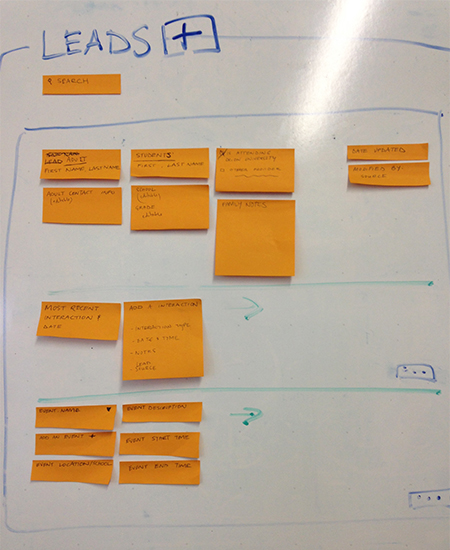 LEADS +
SEARCH
LEAD ADULT
FIRST NAME, LAST NAME
STUDENTS
FIRST, LAST NAME
ATTENDING
UNIVERSITY
DATE UPDATED
MODIFIED BY:
SOURCE
ADULT CONTACT INFO
(editable)
(editable)
GRADE
editable
FAMILY NOTES
MOST RECENT
INTERACTION &
DATE
ADD A INTERACTION
- INTERACTION TYPE
- DATE & TIME
- NOTES
- LEAD
SOURCE
EVENT NAME
EVENT DESCRIPTION
ADD AN EVENT +
EVENT START TIME
EVENT LOCATION
EVENT END TIME